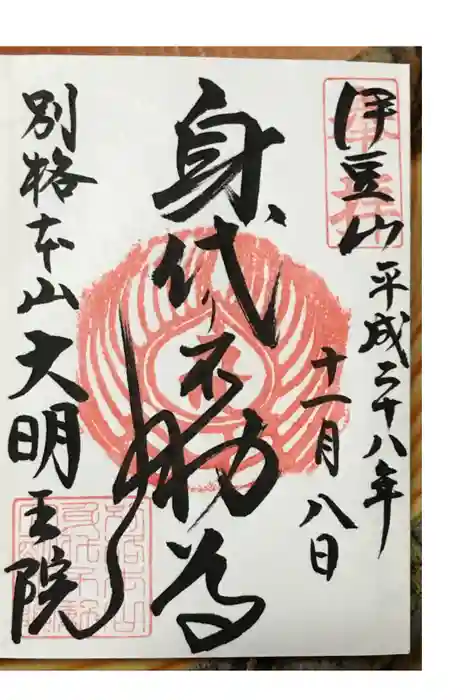 奉拝
伊豆山 平成二十八年
十一月八日
身代り不動尊
別格本山大明王院